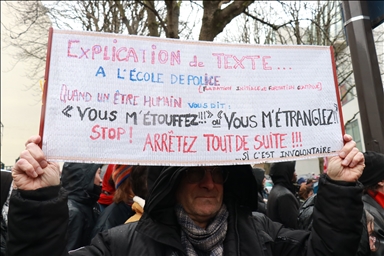 EXPLICATION DE TEXTE...
A L'ÉCOLE DE POLICE
(FORMATION INITIALE ET FORMATION CONTINUE)
QUAND UN ÊTRE HUMAIN VOUS DIT :
« VOUS M'ÉTOUFFEZ!!!» OU «VOUS M'ÉTRANGLEZ!!!»
STOP ! ARRÊTEZ TOUT DE SUITE !!!
...SI C'EST INVOLONTAIRE.